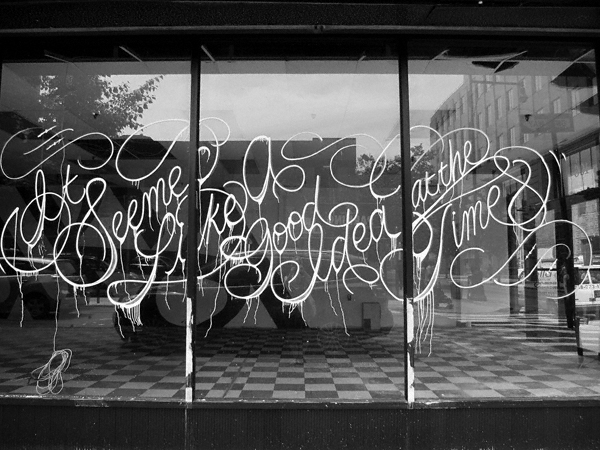 It Seemed
Like
A
Good
Idea
at the
Time